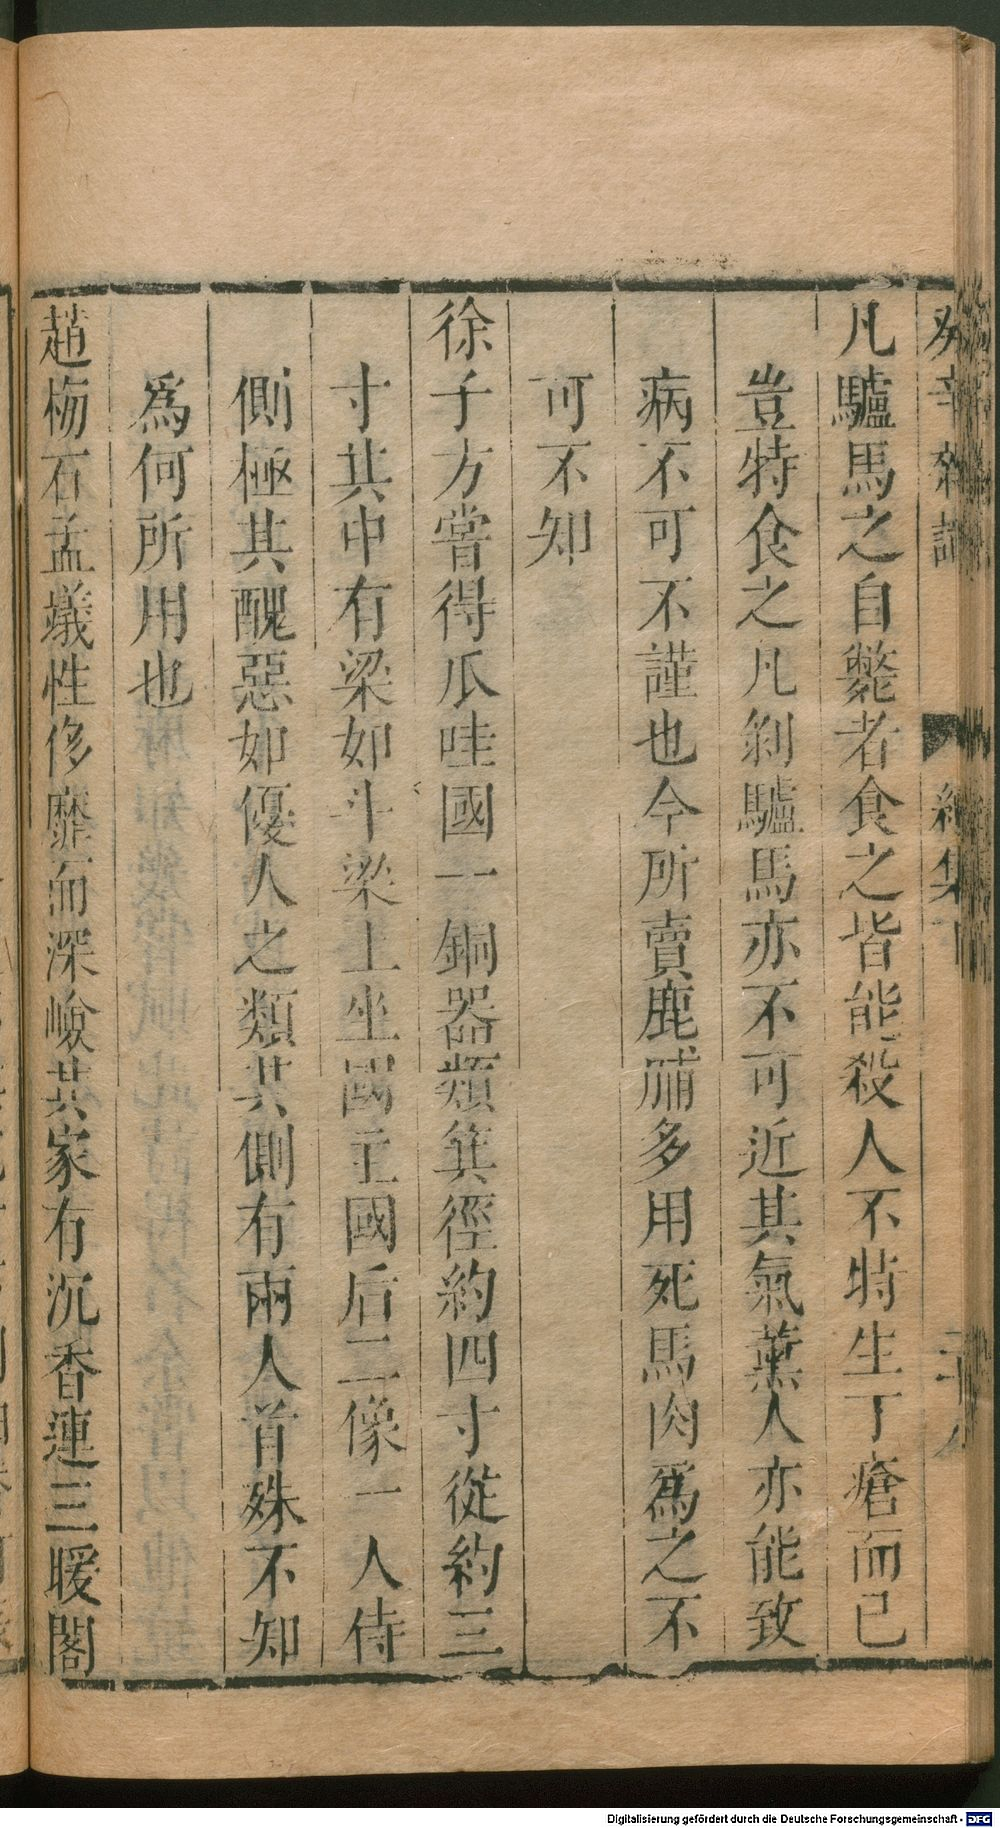 癸辛雜識
續集下
凡驢馬之自斃者食之皆能殺人不特生丁瘡而已
豈特食之凡剝驢馬亦不可近其氣薰人亦能致
病不可不謹也今所賣鹿脯多用死馬肉爲之不
可不知
徐子方嘗得爪哇國一銅器類箕徑約四寸從約三
寸其中有梁如斗梁上坐國主國后二像一人侍
側極其醜惡如優人之類其側有兩人首殊不知
爲何所用也
趙栴石孟䗫性侈靡而深嶮其家有沉香連三暖閣
Digitalisierung gefördert durch die Deutsche Forschungsgemeinschaft - DFG